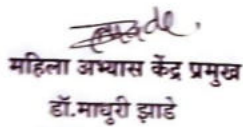 महिला अभ्यास केंद्र प्रमुख
डॉ.माधुरी झाडे